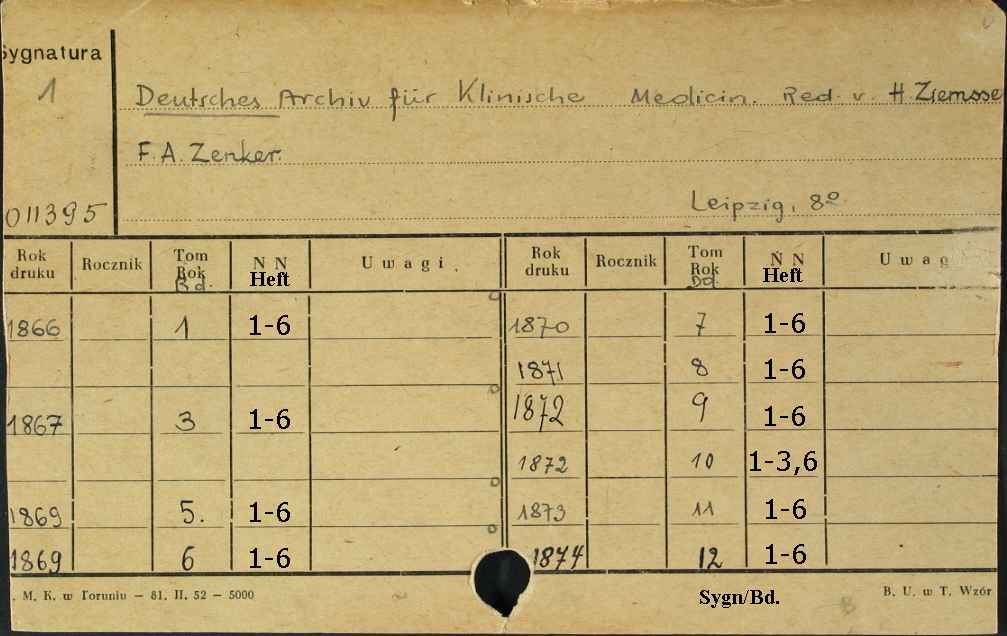 Sygnatura
1
Deutsches Archiv für Klinische Medicin. Red. v. H Ziemsse
F. A. Zenker.
011395
Leipzig, 8º
Rok druku Rocznik Tom Rok Bd. N N Heft Uwagi. Rok druku Rocznik Tom Rok Bd. N N Heft Uwag
1866 1 1-6 1870 7 1-6
1871 8 1-6
1867 3 1-6 1872 9 1-6
1872 10 1-3,6
1869 5. 1-6 1873 11 1-6
1869 6 1-6 1874 12 1-6
. M. K. w Toruniu — 81. II. 52 — 5000 Sygn/Bd. B. U. w T. Wzór